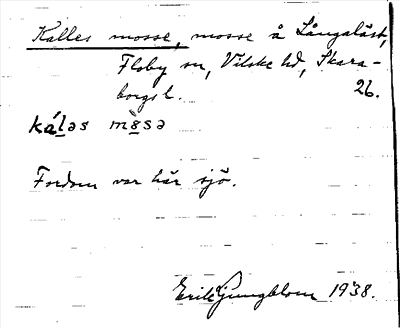 Kalles mosse, mosse å Långalöst,
Floby sn, Vilske hd, Skara-
borgs l. 26.
káləs mòsə
Fordom var här sjö.
Erik Ljungblom 1938.